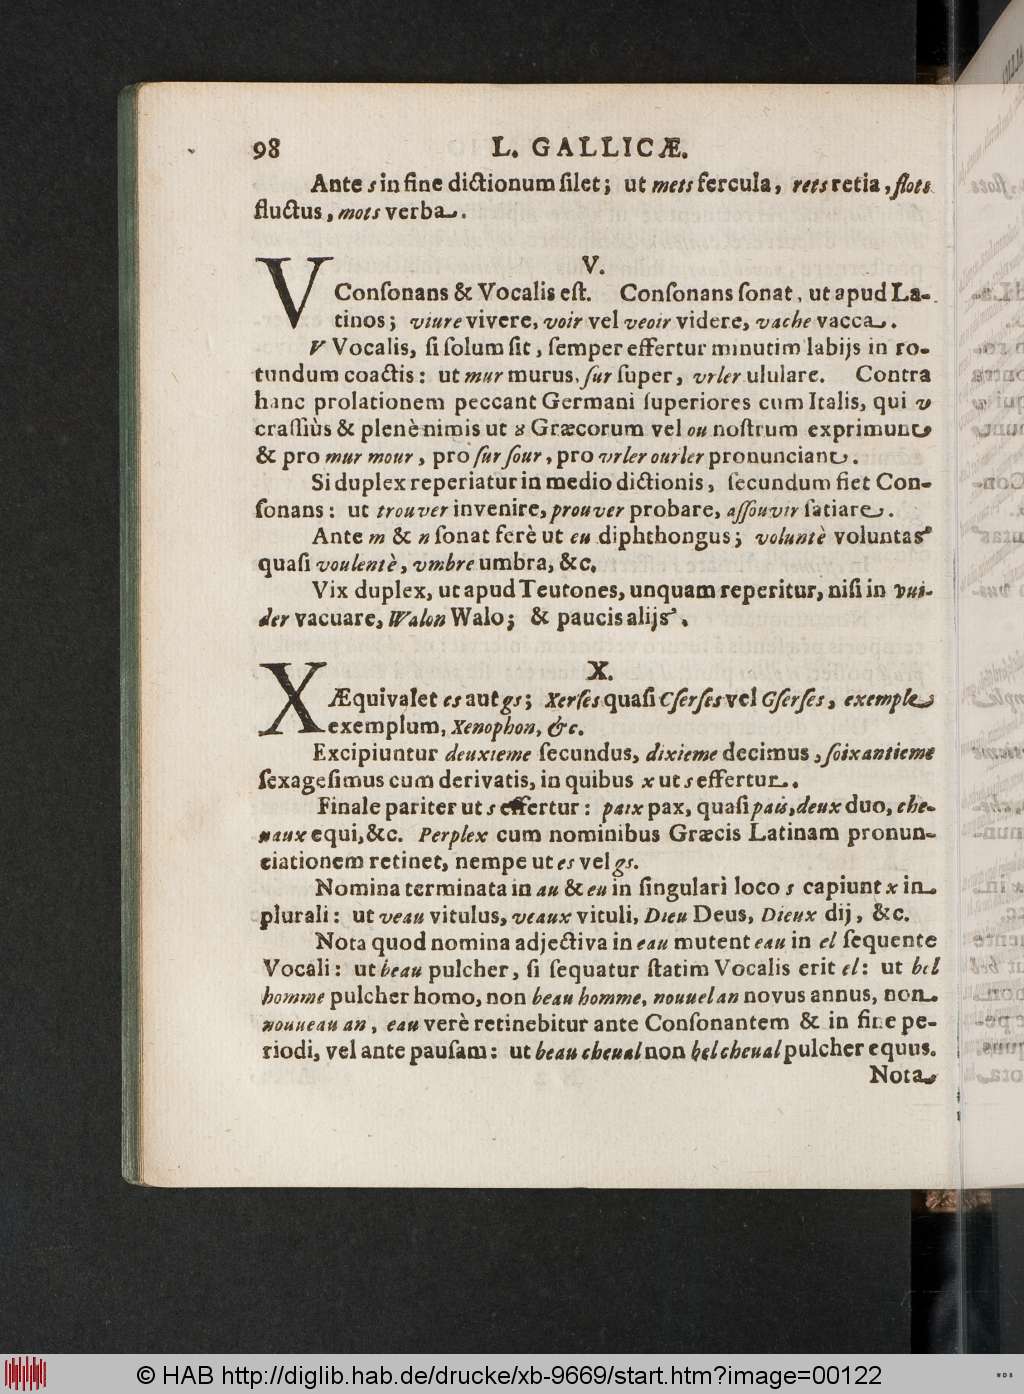 98 L. GALLICÆ.
Ante s in fine dictionum ſilet; ut mets fercula, rets retia, flots
fluctus, mots verba.
V.
V Conſonans & Vocalis eſt. Conſonans ſonat, ut apud La-
tinos; viure vivere, voir vel veoir videre, vache vacca.
V Vocalis, ſi ſolum ſit, ſemper effertur minutim labijs in ro-
tundum coactis: ut mur murus, ſur ſuper, vrler ululare. Contra
hanc prolationem peccant Germani ſuperiores cum Italis, qui v
craſſiùs & plenè nimis ut ȣ Græcorum vel ou noſtrum exprimunt
& pro mur mour, pro ſur ſour, pro vrler ourler pronunciant.
Si duplex reperiatur in medio dictionis, ſecundum fiet Con-
ſonans: ut trouver invenire, prouver probare, aſſouvir ſatiare.
Ante m & n ſonat ferè ut eu diphthongus; voluntè voluntas
quaſi voulentè, vmbre umbra, &c.
Vix duplex, ut apud Teutones, unquam reperitur, niſi in vui-
der vacuare, Walon Walo; & paucis alijs.
X.
X Æquivalet cs aut gs; Xerſes quaſi Cſerſes vel Gſerſes, exemple
exemplum, Xenophon, &c.
Excipiuntur deuxieme ſecundus, dixieme decimus, ſoixantieme
ſexageſimus cum derivatis, in quibus x ut s effertur.
Finale pariter ut s effertur: paix pax, quaſi pais, deux duo, che-
uaux equi, &c. Perplex cum nominibus Græcis Latinam pronun-
ciationem retinet, nempe ut cs vel gs.
Nomina terminata in au & eu in ſingulari loco s capiunt x in
plurali: ut veau vitulus, veaux vituli, Dieu Deus, Dieux dij, &c.
Nota quod nomina adjectiva in eau mutent eau in el ſequente
Vocali: ut beau pulcher, ſi ſequatur ſtatim Vocalis erit el: ut bel
homme pulcher homo, non beau homme, nouuel an novus annus, non
nouueau an, eau verè retinebitur ante Conſonantem & in fine pe-
riodi, vel ante pauſam: ut beau cheual non bel cheual pulcher equus.
Nota
© HAB http://diglib.hab.de/drucke/xb-9669/start.htm?image=00122